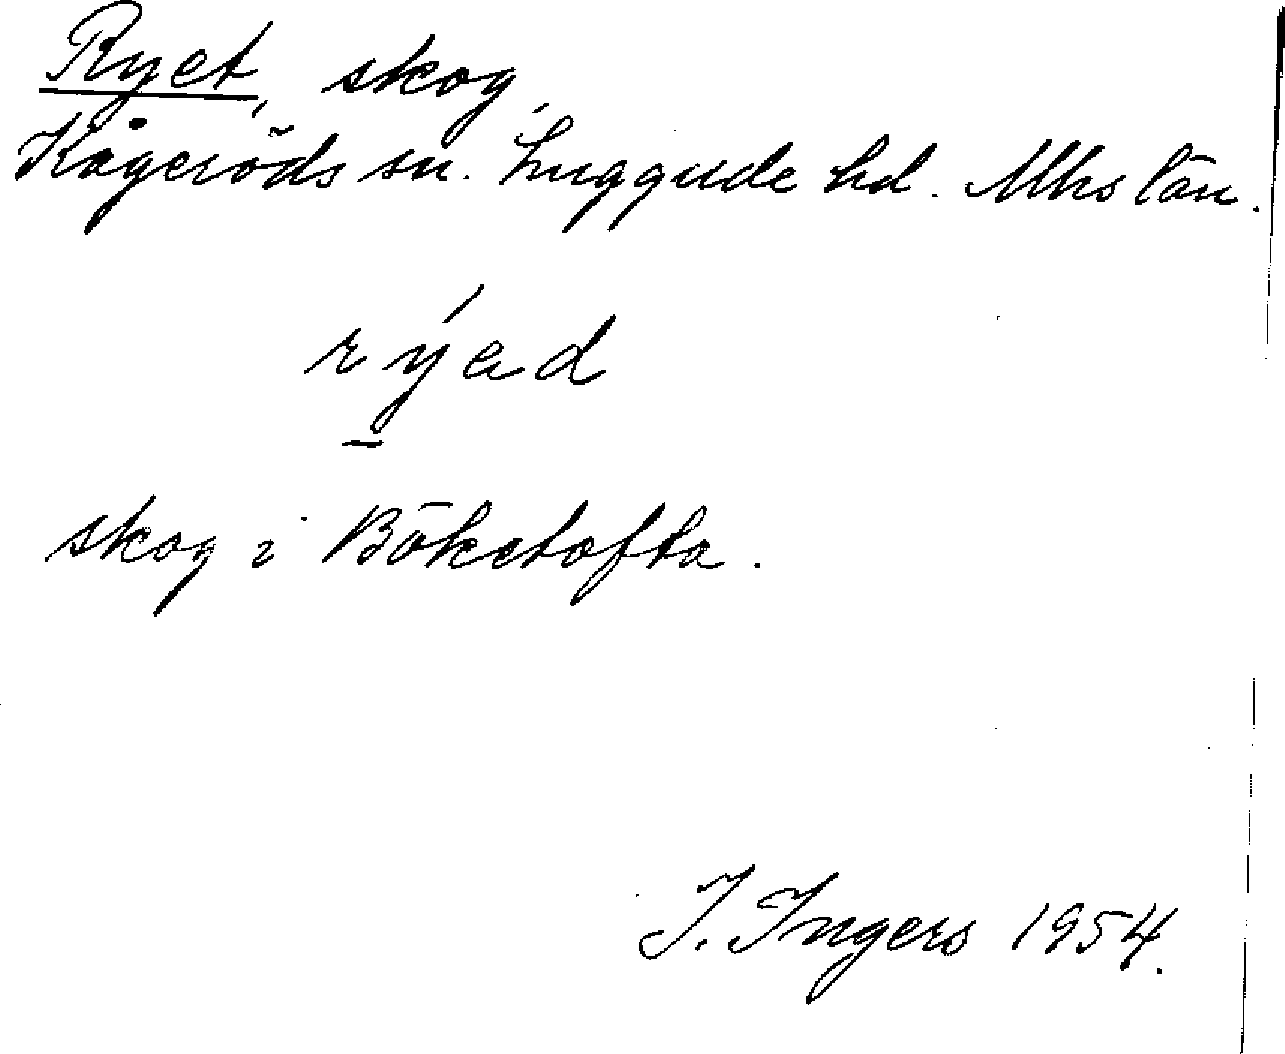 Ryet, skog,
Kågeröds sn. Luggude hd. Mhs län.
rýad
skog i Böketofta.
I. Ingers 1954.